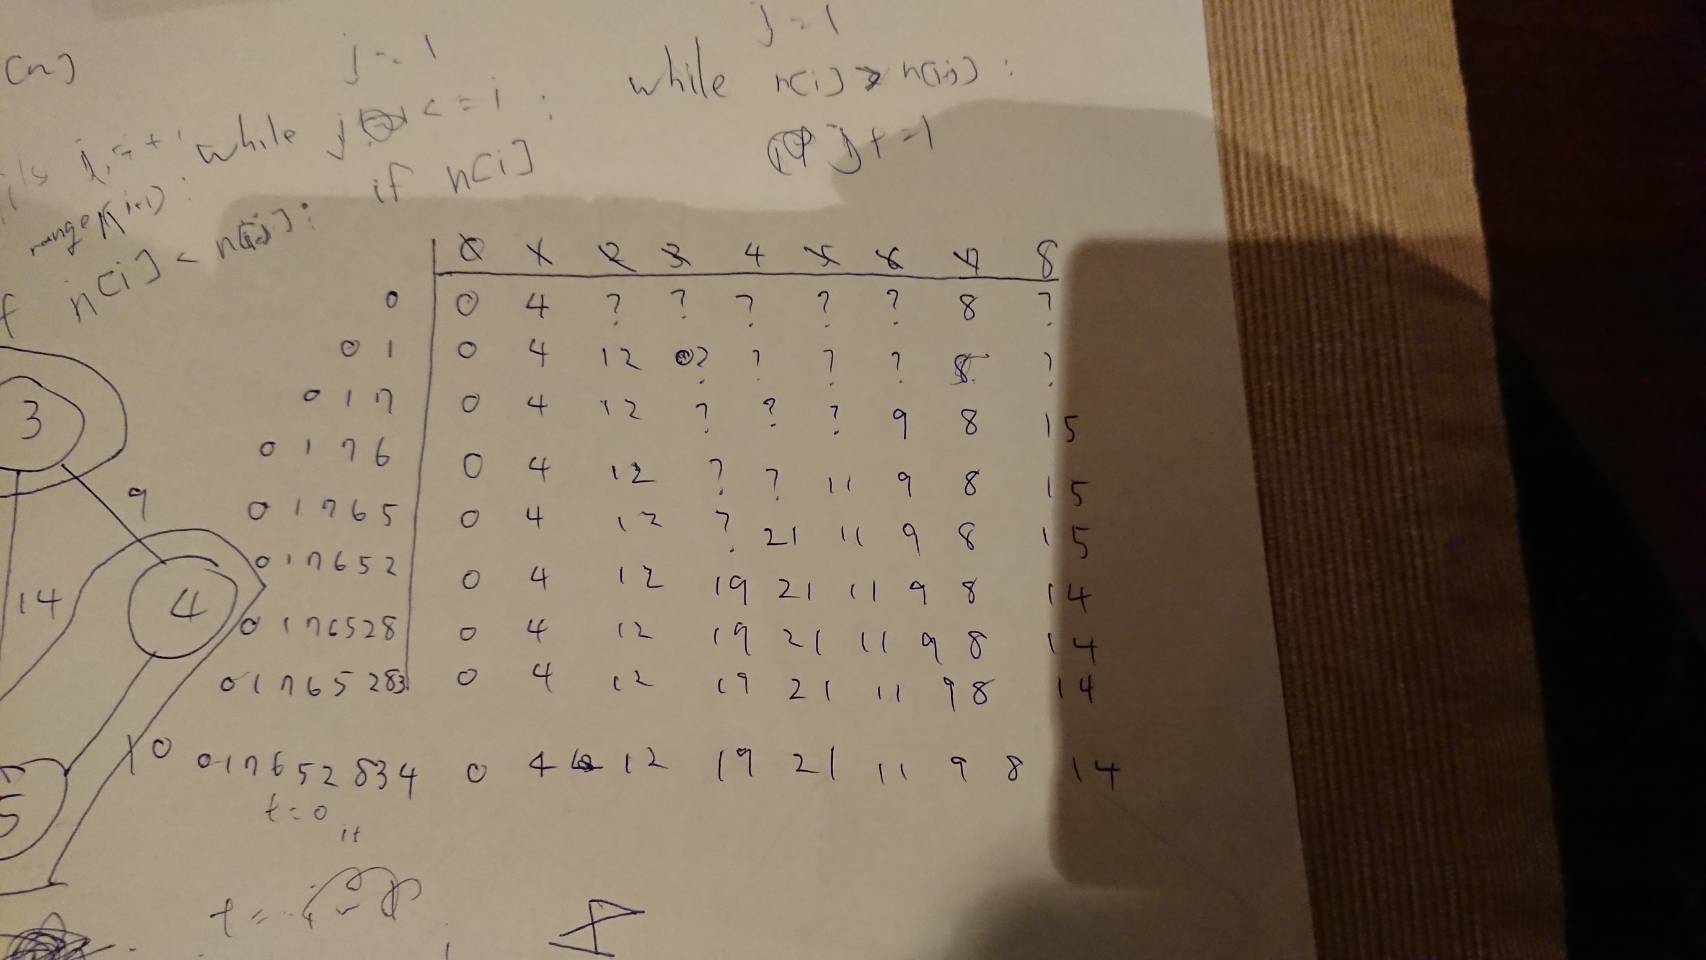 (n)
j = 1
j = 1
while n[i] > n[i-j] :
while j <= i :
j + = 1
if n[i]
range(1, i+1) :
f n[i] < n[i-j] :
0 1 2 3 4 5 6 7 8
0 0 4 ? ? ? ? ? 8 ?
0 1 0 4 12 ? ? ? ? 8 ?
0 1 7 0 4 12 ? ? ? 9 8 15
0 1 7 6 0 4 12 ? ? 11 9 8 15
0 1 7 6 5 0 4 12 ? 21 11 9 8 15
0 1 7 6 5 2 0 4 12 19 21 11 9 8 14
0 1 7 6 5 2 8 0 4 12 19 21 11 9 8 14
0 1 7 6 5 2 8 3 0 4 12 19 21 11 9 8 14
0 1 7 6 5 2 8 3 4 0 4 12 19 21 11 9 8 14
3
9
14
4
10
5
t = 0
it
t =